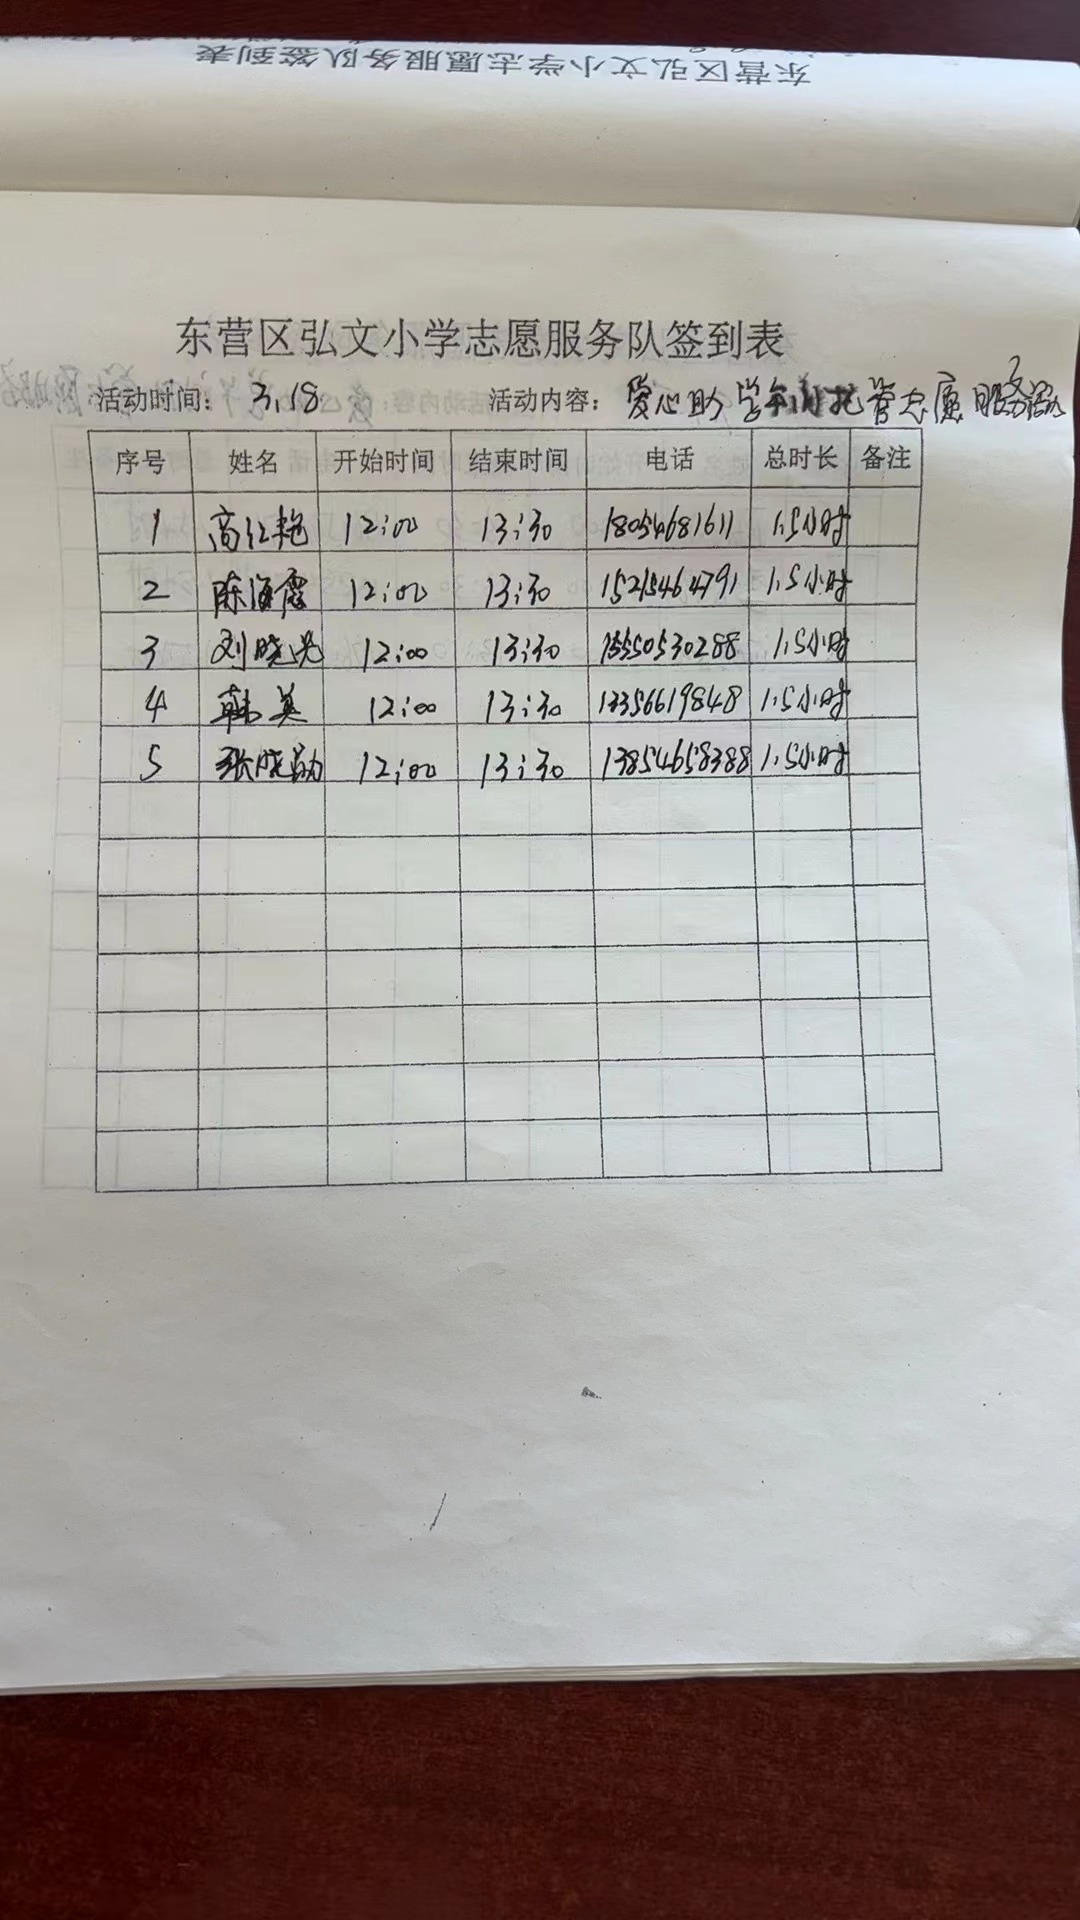 东营区弘文小学志愿服务队签到表
东营区弘文小学志愿服务队签到表
活动时间： 3.18 活动内容： 爱心助学午间托管志愿服务活动
序号 姓名 开始时间 结束时间 电话 总时长 备注
1 高红艳 12:00 13:30 18054681611 1.5小时
2 陈海霞 12:00 13:30 15215464791 1.5小时
3 刘晓光 12:00 13:30 15550530288 1.5小时
4 韩英 12:00 13:30 13356619848 1.5小时
5 张晓勋 12:00 13:30 13854658388 1.5小时